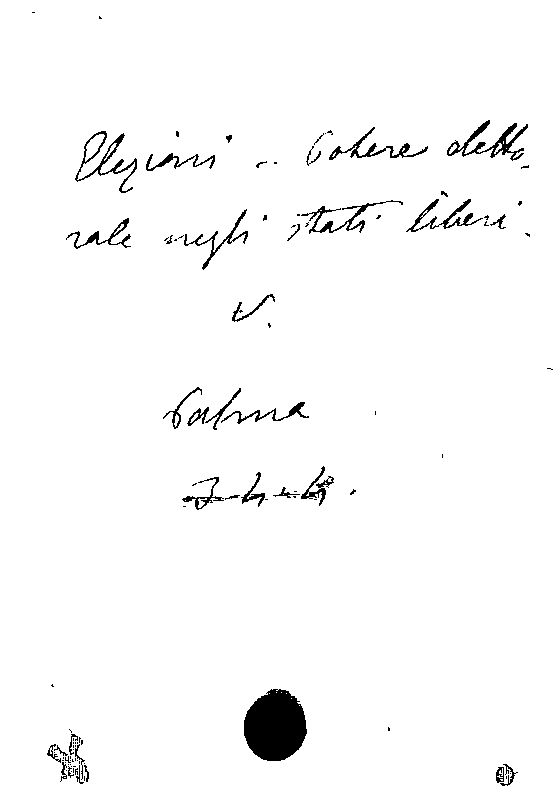 Elezioni - Potere eletto-
rale negli stati liberi.
V.
Palma